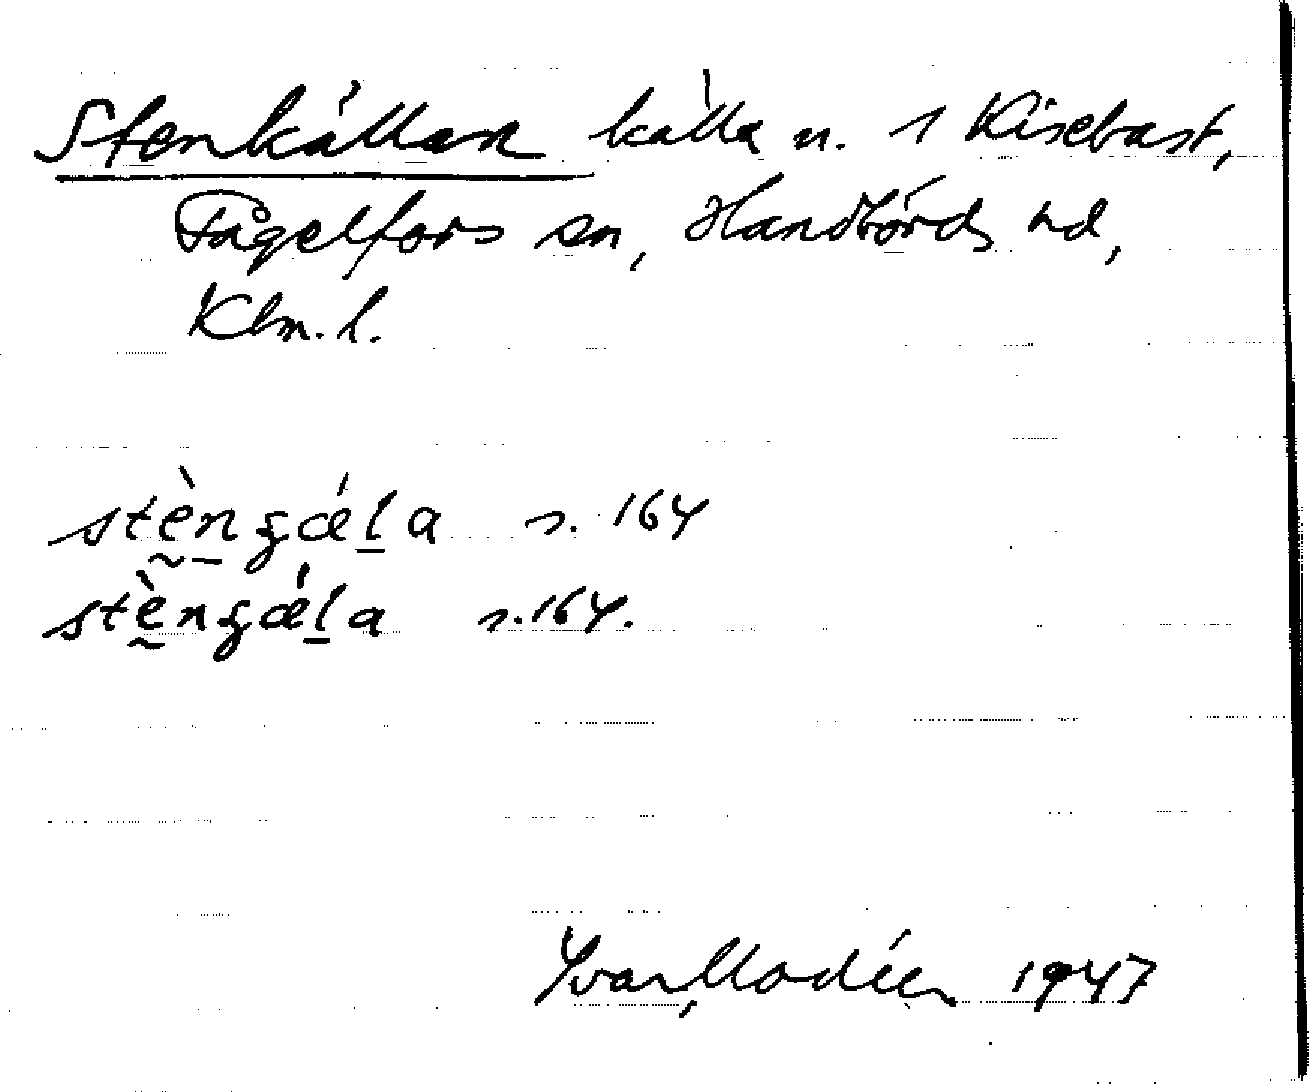 Stenkällan källa n. s Kisebast,
Fågelfors sn, Handbörds hd,
Klm. l.
stḛ̀n̠ʒǽl̠a s. 164
stḛ̀nʒǽl̠a s. 164.
Yvar Modéer 1947